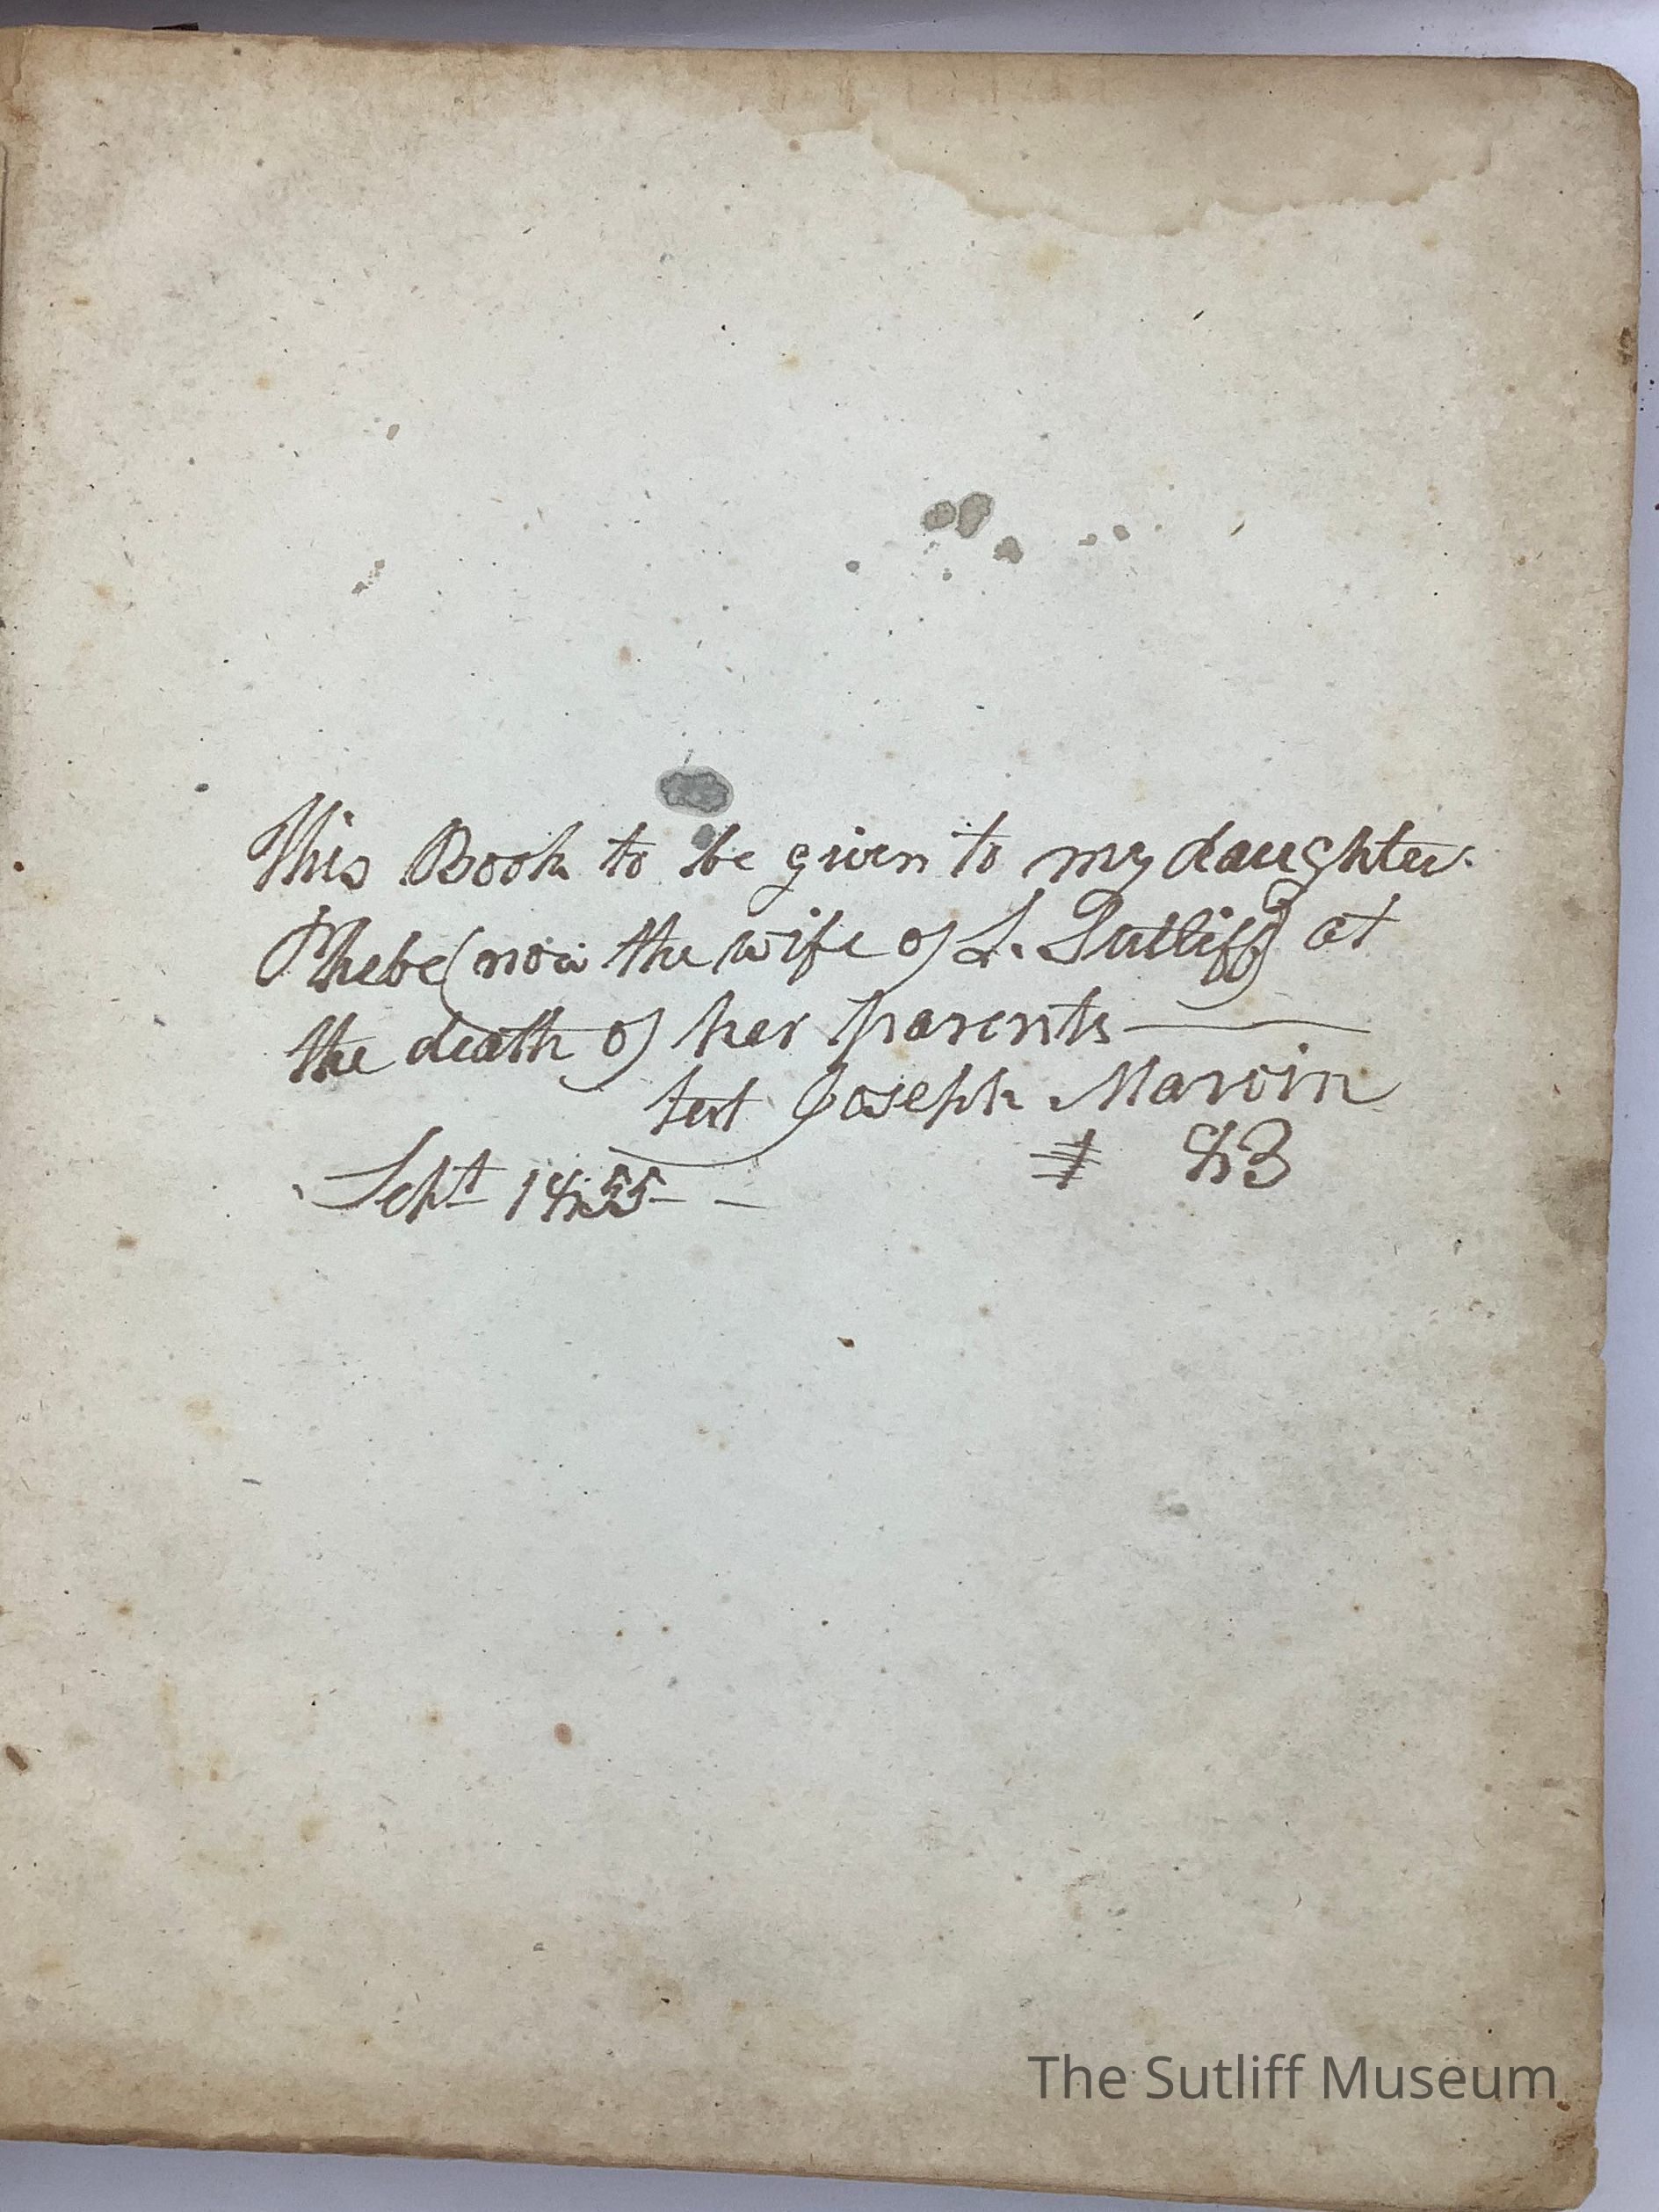 This Book to be given to my daughter
Phebe (now the wife of L. Sutliff) at
the death of her parents —
test Joseph Marvin
Sept 1855 — # 83
The Sutliff Museum